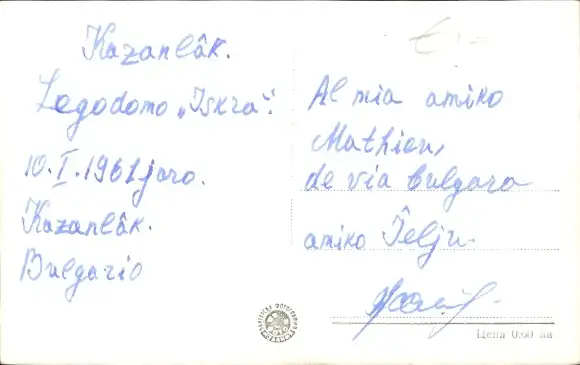 Kazanlâk.
Legodomo „Iskra“.
10.I.1961 jaro.
Kazanlâk.
Bulgario
Al mia amiko
Mathieu,
de via bulgara
amiko Ĵelju.
Цена 0·60 лв